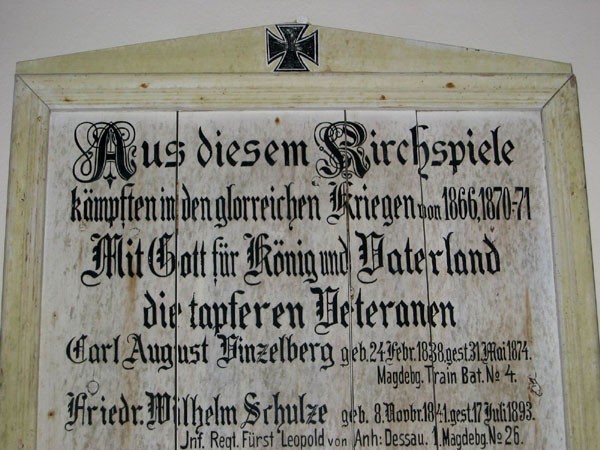 Aus diesem Kirchspiele
kämpften in den glorreichen Kriegen von 1866, 1870-71
Mit Gott für König und Vaterland
die tapferen Veteranen
Carl August Vinzelberg geb. 24. Febr. 1838. gest. 31. Mai 1874.
Magdebg. Train Bat. No 4.
Friedr. Wilhelm Schulze geb. 8. Novbr. 1841. gest. 17 Juli 1893.
Jnf. Regt. Fürst Leopold von Anh: Dessau. 1. Magdebg. No 26.